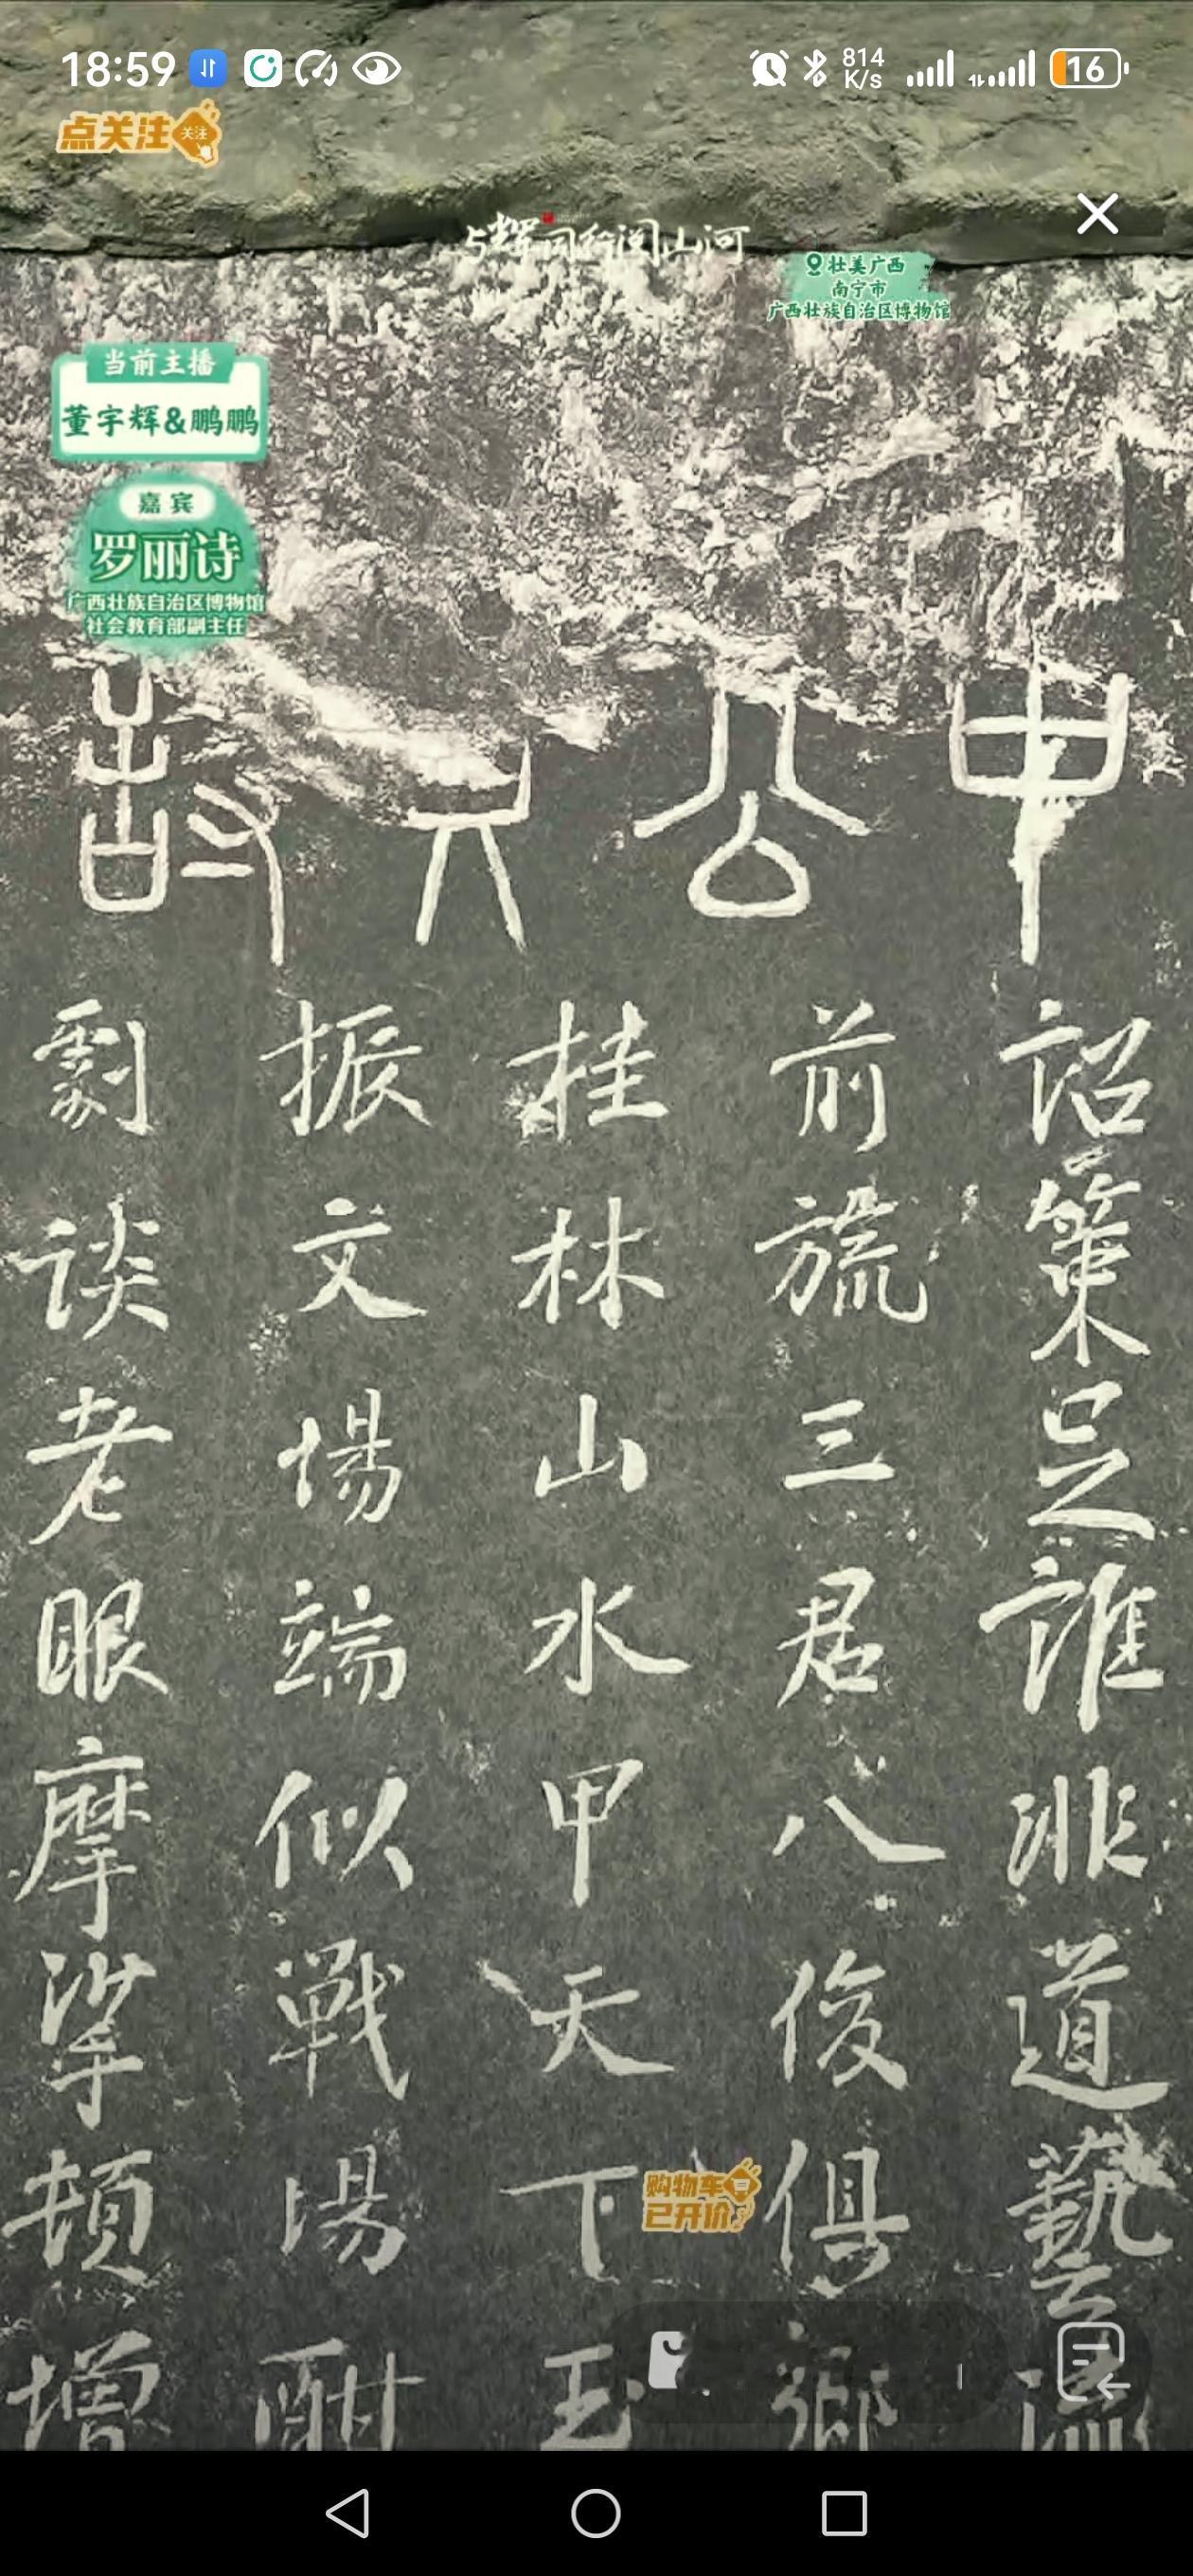 18:59
814
K/s
16
点关注
关注
与辉同行阅山河
壮美广西
南宁市
广西壮族自治区博物馆
当前主播
董宇辉&鹏鹏
嘉宾
罗丽诗
广西壮族自治区博物馆
社会教育部副主任
公
詔策足誰非道藝流
前旒三君八俊俱鄉
桂林山水甲天下玉
振文場端似戰場酣
劇談老眼摩挲頓增
购物车
已开价